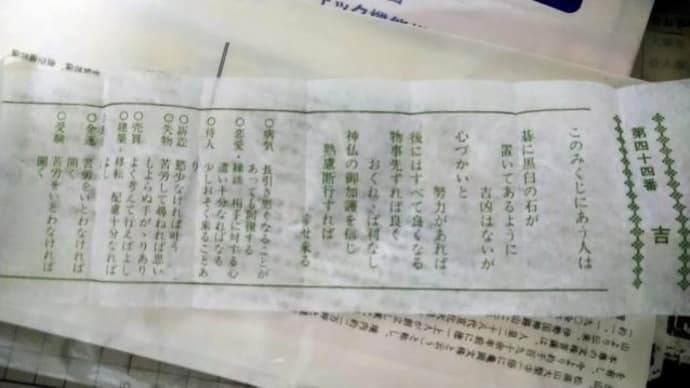 第四十四番
吉
このみくじにあう人は
碁に黒白の石が
置いてあるように
吉凶はないが
心づかいと
努力があれば
後にはすべて良くなる
物事先ずれば良く
おくれゝば利なし
神仏の御加護を信じ
熟慮断行すれば
幸せ来る
○病気 長引き悪くなることが
あっても回復する
○恋愛・縁談 相手に対する心
遣い十分なればなる
○待人 少しおそく来ることあ
り
○訴訟 慾少なければ叶う
○失物 苦労して尋ねれば思い
もよらぬ手がゝりあり
○売買 よく考えて行えばよし
○建築・移転 配慮十分なれば
よし
○金運 苦労をいとわなければ
開く
○受験 苦労をいとわなければ
開く